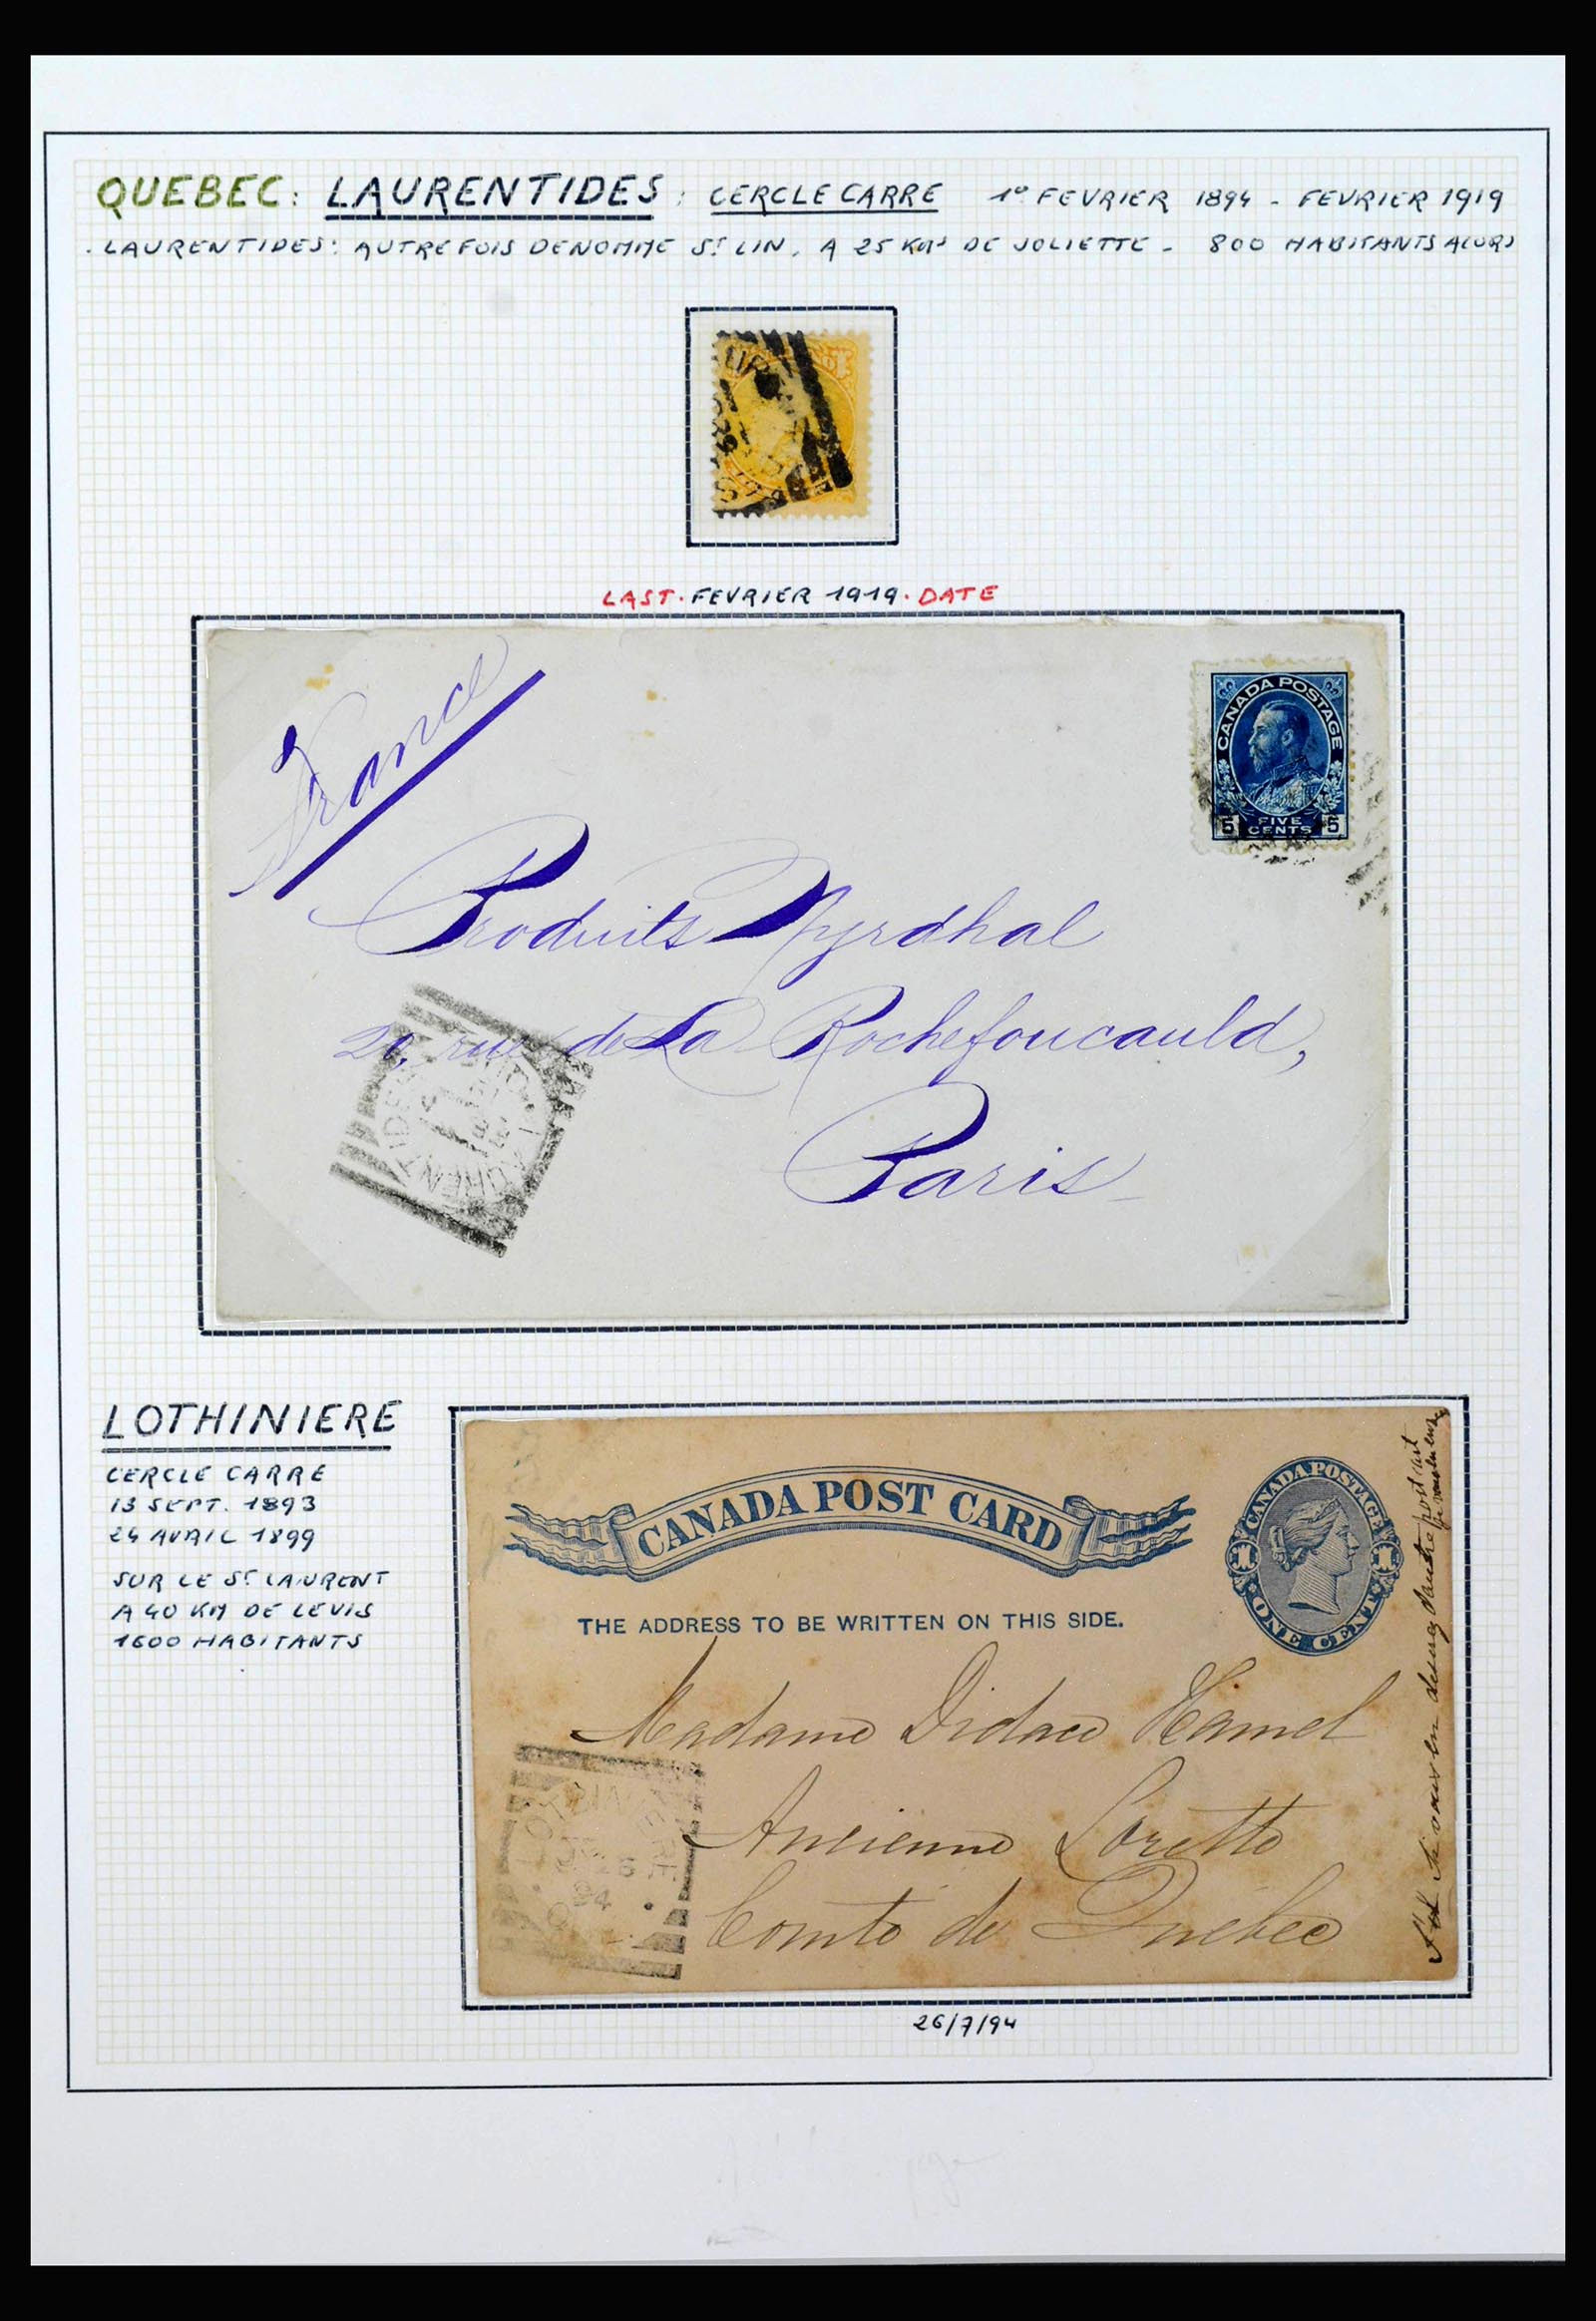 QUEBEC: LAURENTIDES: CERCLE CARRE 1º FEVRIER 1894 - FEVRIER 1919
. LAURENTIDES: AUTREFOIS DENOMME St LIN, A 25 Kms DE JOLIETTE - 800 HABITANTS ALORS
LAST. FEVRIER 1919. DATE
France
CANADA POSTAGE
5 FIVE CENTS 5
Produits Myrdhal
20, rue de La Rochefoucauld,
Paris
LAURENTIDES
LOTHINIERE
CERCLE CARRE
13 SEPT. 1893
24 AVRIL 1899
SUR LE St LAURENT
A 40 KM DE LEVIS
1600 HABITANTS
CANADA POST CARD
CANADA POSTAGE
1 1
ONE CENT
THE ADDRESS TO BE WRITTEN ON THIS SIDE.
Madame Didace Hamel
Ancienne Lorette
Comté de Québec
26
94
26/7/94